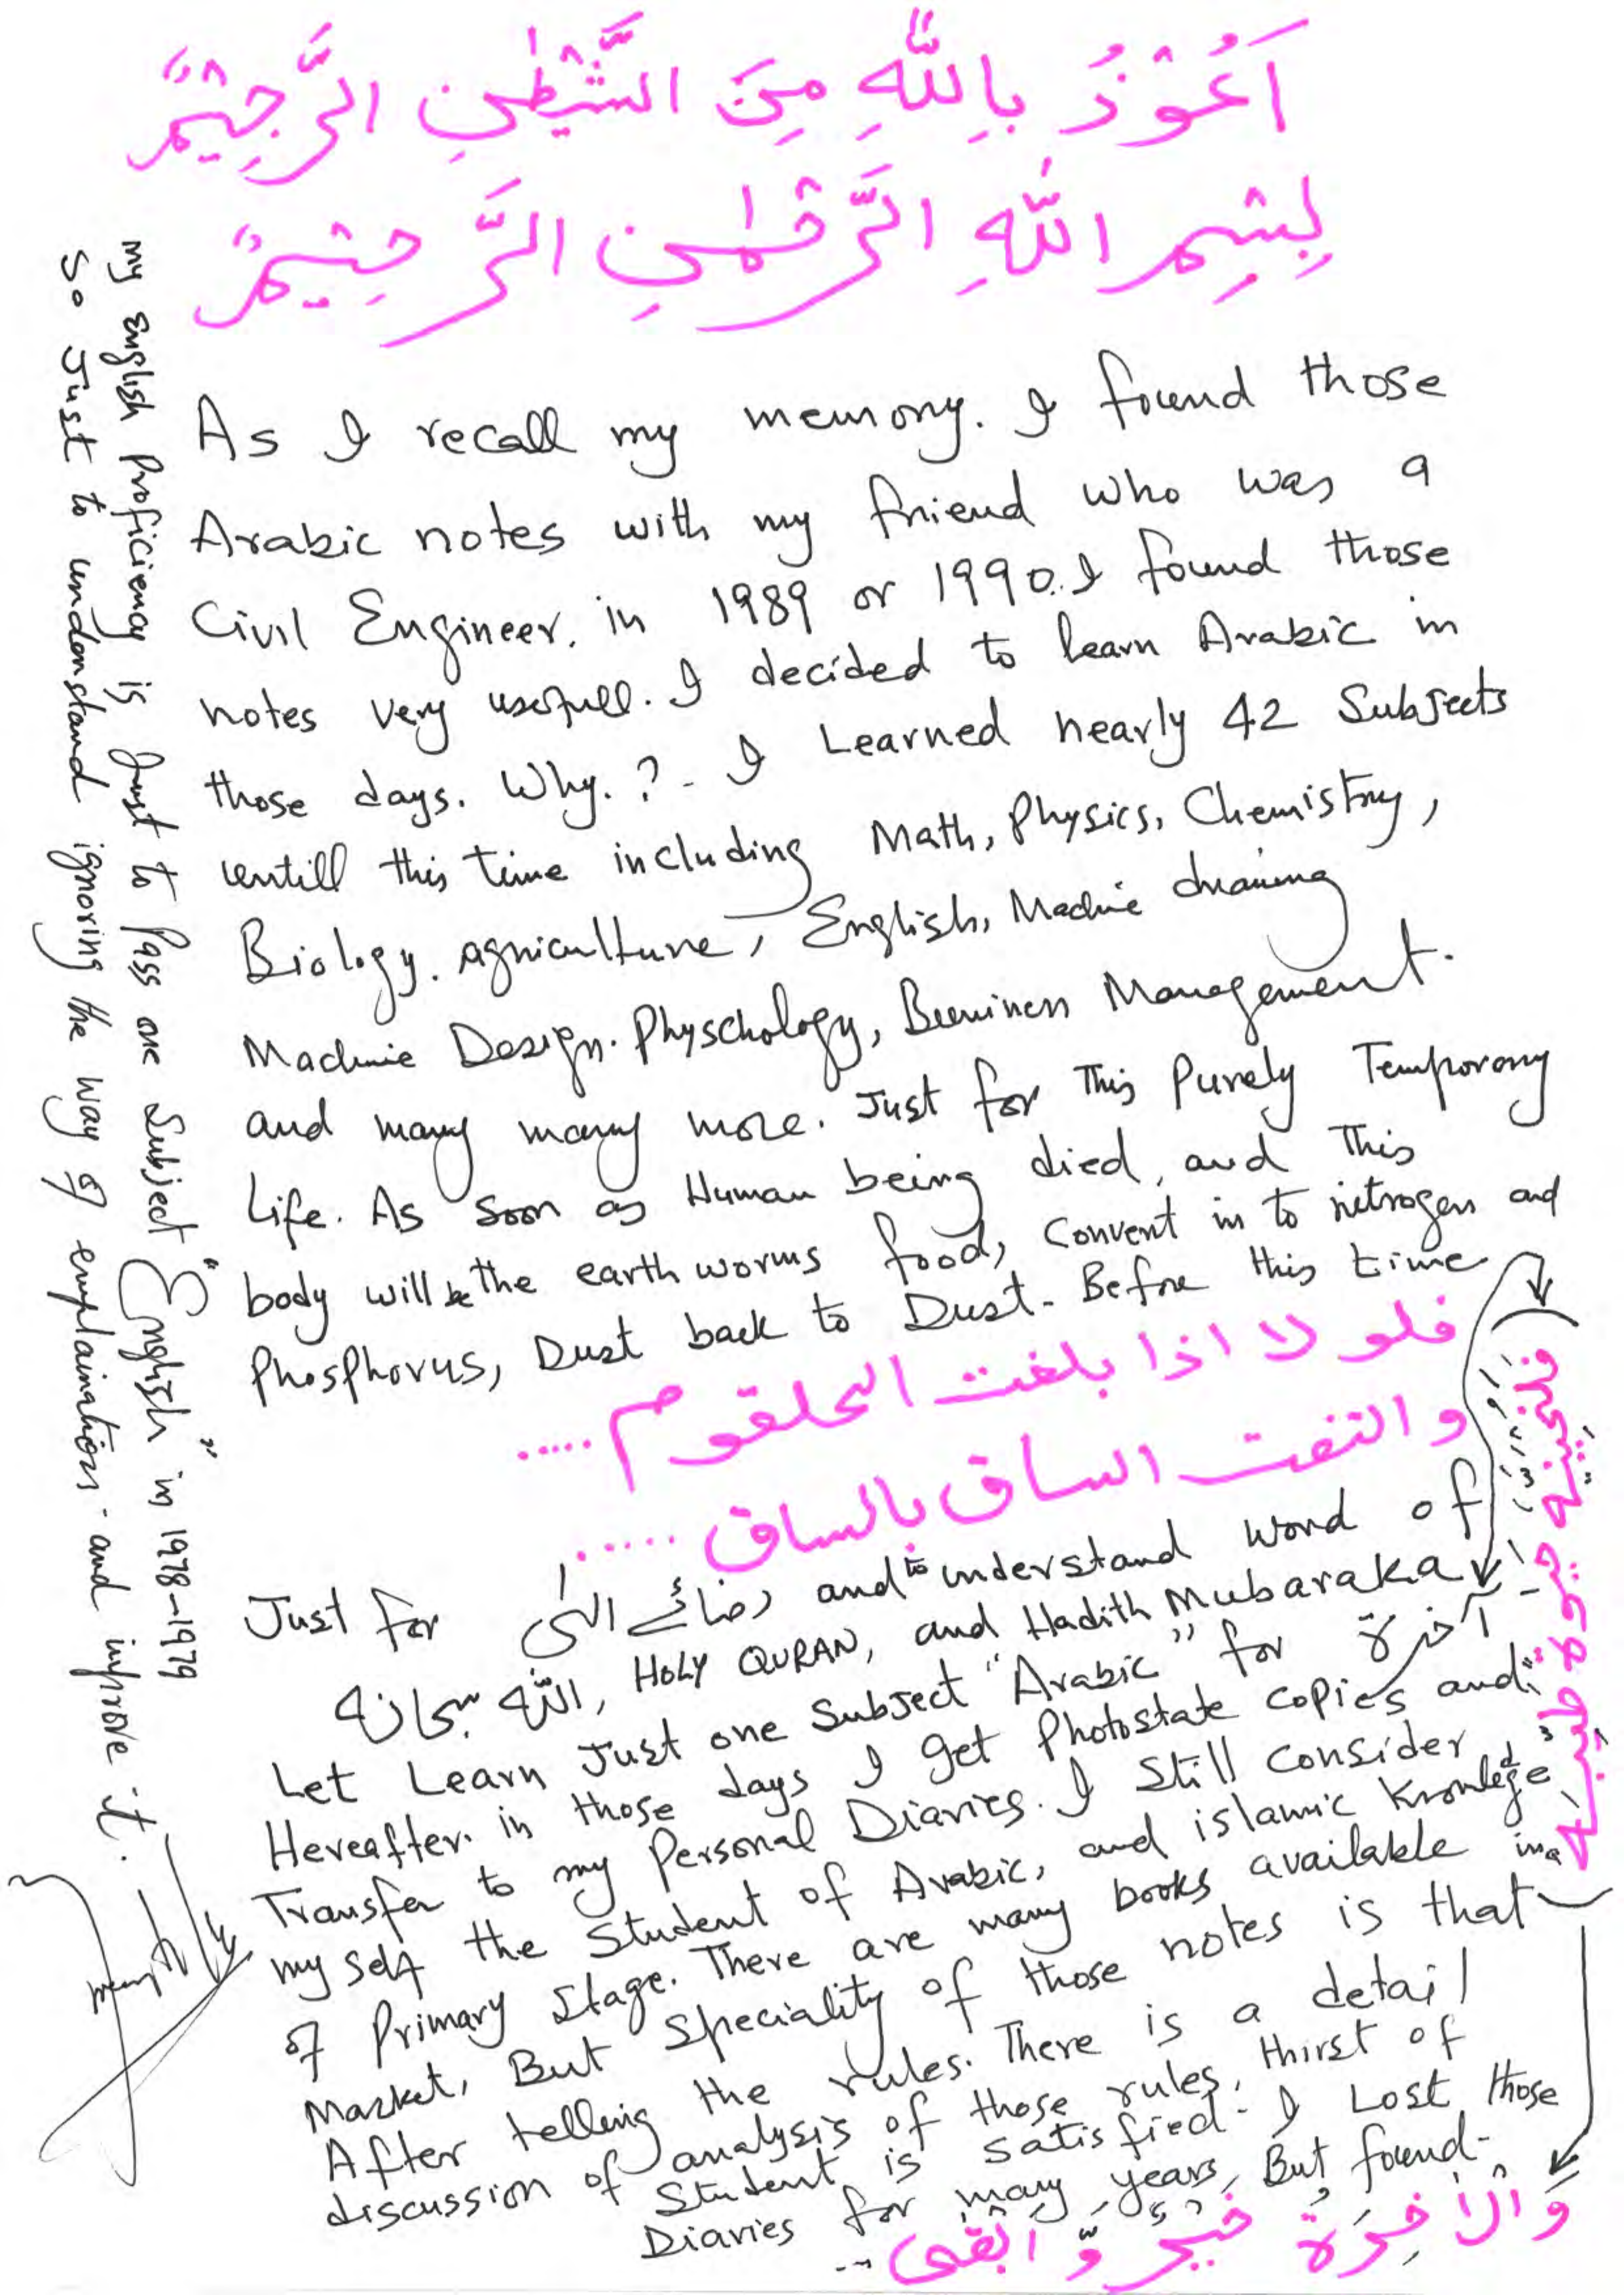 اَعُوْذُ بِاللّٰهِ مِنَ الشَّيْطٰنِ الرَّجِيْمِ
بِسْمِ اللّٰهِ الرَّحْمٰنِ الرَّحِيْمِ
As I recall my memory. I found those
Arabic notes with my friend who was a
Civil Engineer. in 1989 or 1990. I found those
notes very usefull. I decided to learn Arabic in
those days. Why.? - I Learned nearly 42 Subjects
untill this time including Math, Physics, Chemistry,
Biology. agriculture, English, Machine drawing
Machine Design. Physchology, Bussiness Management.
and many many more. Just for This Purely Temporary
Life. As soon as Human being died, and This
body will be the earth worms food, Convert in to nitrogen and
Phosphorus, Dust back to Dust - Before this time
فلو لا اذا بلغت الحلقوم .....
و التفت الساق بالساق .....
Just for رضائے الٰہی and to understand word of
الله سبحانه, HOLY QURAN, and Hadith Mubaraka
Let Learn Just one Subject "Arabic" for آخرة
Hereafter. in those days I get Photostate copies and
Transfer to my Personal Diaries. I Still consider
my self the Student of Arabic, and islamic Knowledge
of Primary Stage. There are many books available in a
Market, But Speciality of those notes is that
After telling the rules. There is a detail
discussion of analysis of those rules, thirst of
Student is satisfied - I Lost those
Diaries for many years, But found -
وَالْاٰخِرَةُ خَيْرٌ وَّ اَبْقٰى ...
فلنحيينه حيوة طيبة
my English Proficiency is Just to Pass one Subject "English" in 1978-1979
So Just to understand ignoring the way of explainations - and improve it.